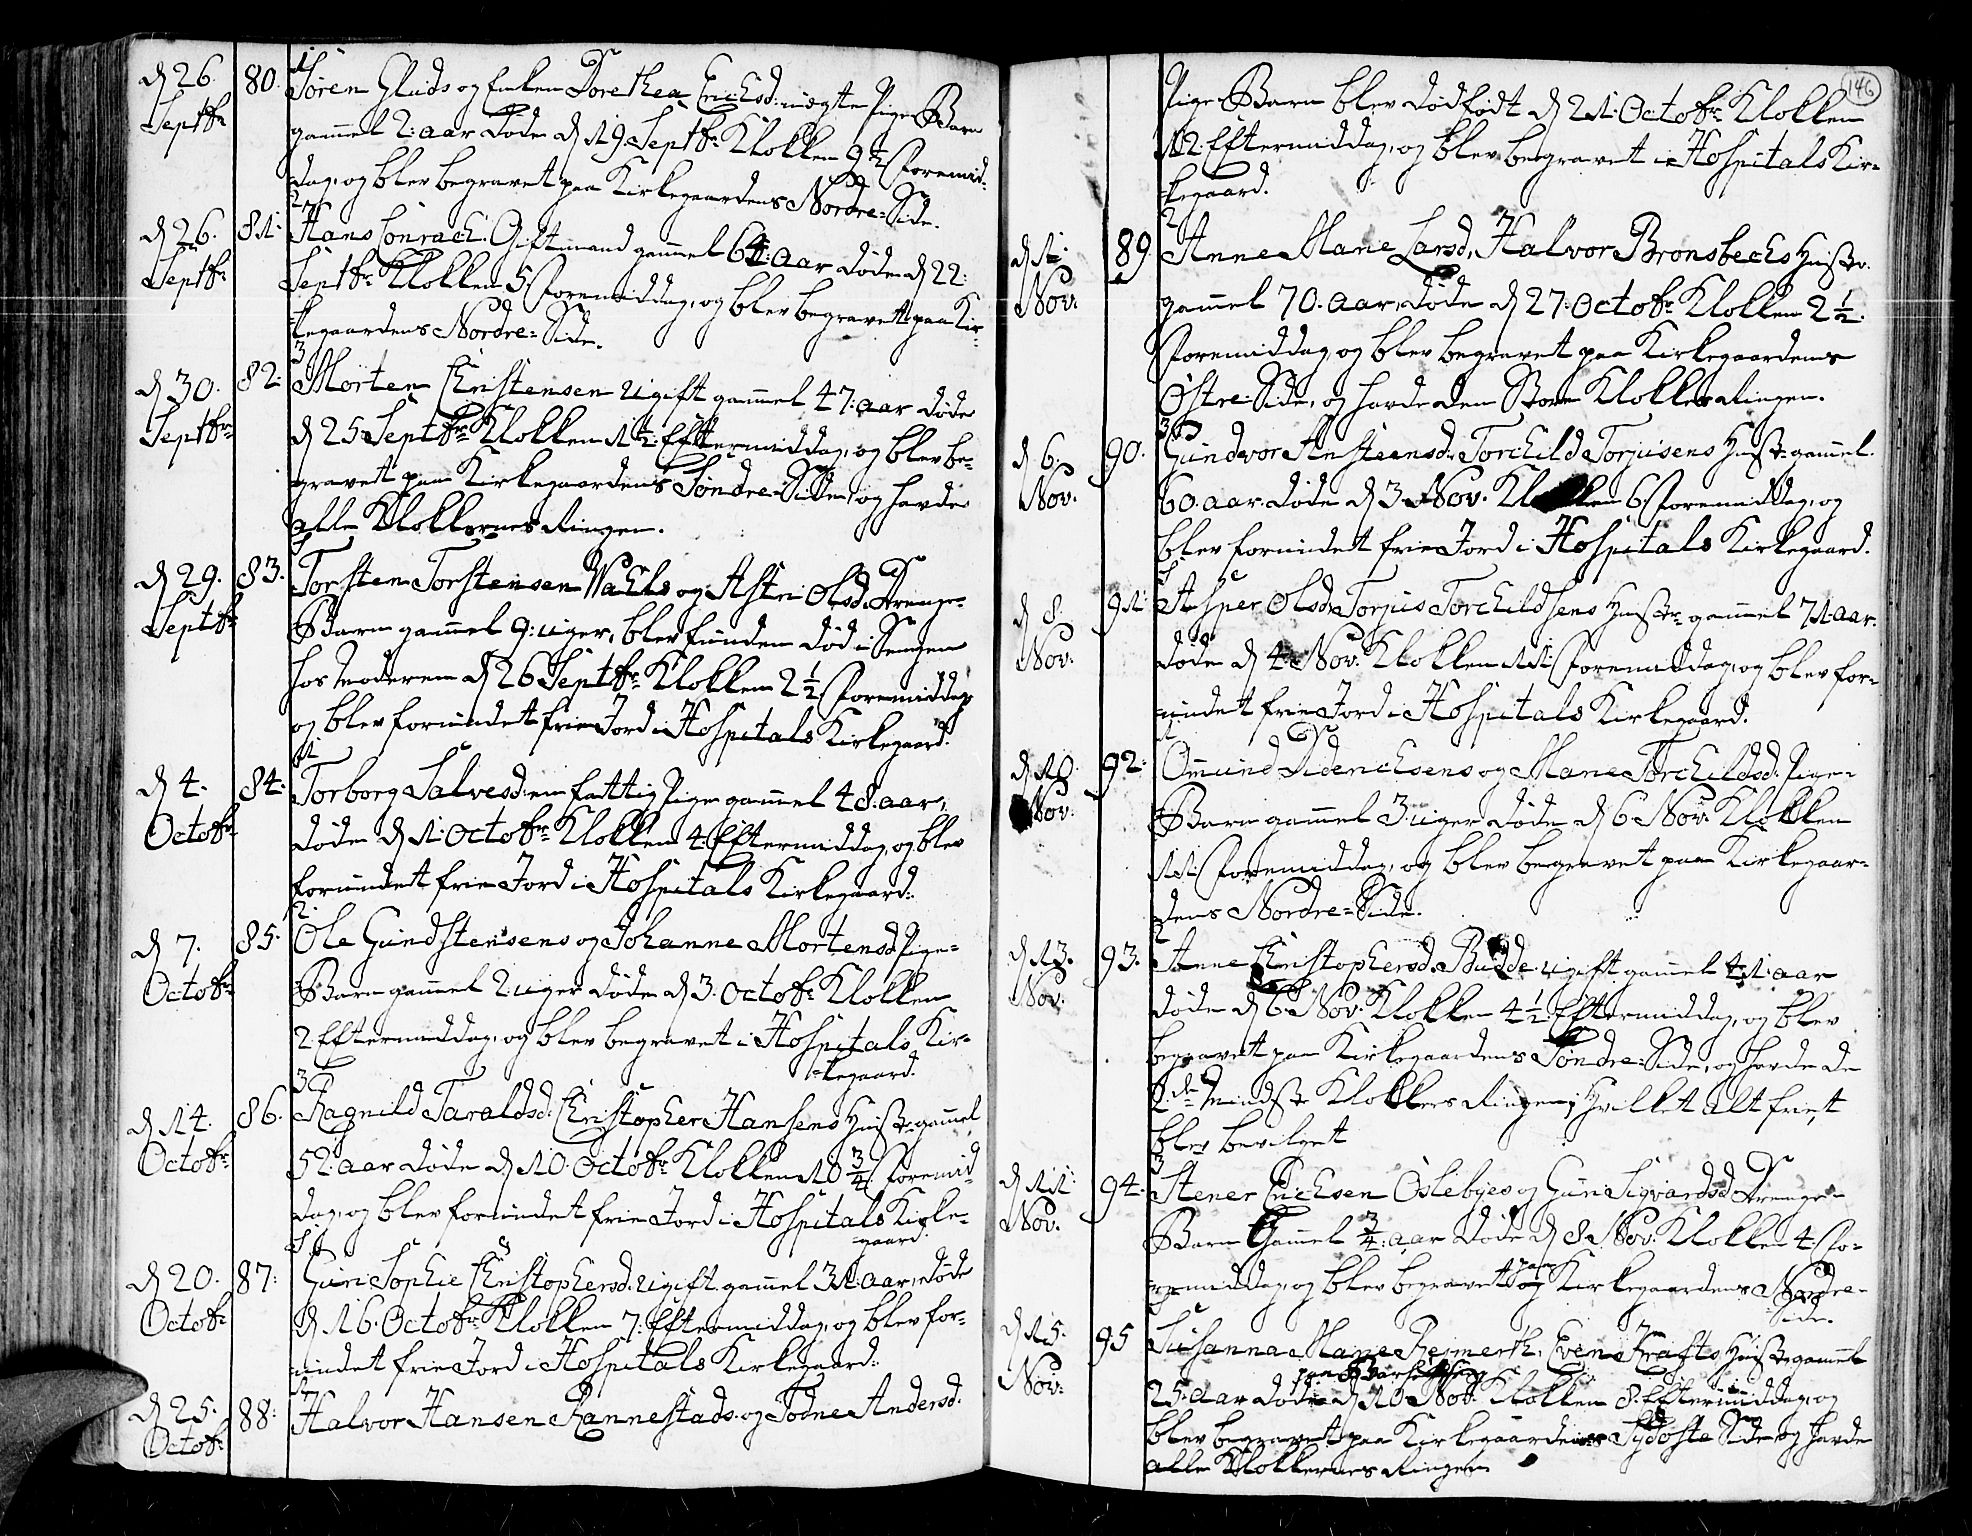 146
d 26. Septbr 80. 1 Sören Gluds og Dorethea Erichsd: uægte Pige Barn
gammel 2: aar døde d 19 Septbr Klokken 9½ Formid-
dag, og blev begravet paa Kirkegaardens Nordre-Side.
d 26. Septbr 81: 2 Hans Conrad: Giftmand gammel 64: aar døde d 22:
Septbr Klokken 5 Formiddag, og blev begravet paa Kir-
kegaardens Nordre-Side.
d 30. Septbr 82: 3 Morten Christensen Ugift gammel 47: aar døde
d 25 Septbr Klokken 1½: Eftermiddag, og blev be-
gravet paa Kirkegaardens Søndre-Side, og havde
alle Klokkernes Ringen.
d 29. Septbr 83. Torsten Torstensen Wahls og Astri Olsd: Drenge-
Barn gammel 9: uger, blev funden død i Sengen
hos Moderen d 26 Septbr Klokken 2½ Formiddag
og blev forundet frie Jord i Hospitals Kirkegaard.
d 4. Octobr 84: 1 Torborg Salvesd: en fattig Pige gammel 48. aar,
døde d 1: Octobr Klokken 4: Eftermiddag, og blev
forundet frie Jord i Hospitals Kirkegaard:
d 7. Octobr 85: 2. Ole Gundstensens og Johanne Mortensd: Pige-
Barn gammel 2: uger døde d 3. Octobr Klokken
2 Eftermiddag, og blev begravet i Hospitals Kir-
kegaard.
d 14. Octobr 86. 3 Ragnild Taraldsd: Christopher Hansens Hustr gammel
52. aar døde d 10. Octobr Klokken 10¾ Formid-
dag, og blev forundet frie Jord i Hospitals Kirke-
gaard.
d 20. Octobr 87: Guri Sophie Christophersd: Ugift gammel 31: aar, døde
d 16. Octobr Klokken 7: Eftermiddag, og blev for-
undet frie Jord i Hospitals Kirkegaard:
d 25. Octobr 88: Halvor Hansen Rannestads og Todne Andersd.
Pige-Barn blev dødfødt d 21: Octobr Klokken
12. Eftermiddag, og blev begravet i Hospitals Kir-
kegaard.
d 1: Nov. 89. 2 Anne Marie Larsd, Halvor Bronsbechs Hustr.
gammel 70. aar, døde d 27. Octobr Klokken 2½.
Formiddag, og blev begravet paa Kirkegaardens
Østre Side, og havde den Store Klokkes Ringen.
d 6. Nov. 90. 3 Gundvor Ansteensd: Torchild Torjusens Hustr gammel
60. aar. døde d 3 Nov. Klokken 6. Formiddag, og
blev forundet frie Jord i Hospitals Kirkegaard.
d 8. Nov. 91 Asper Olsd: Torjus Torchildsens Hustr gammel 71 aar.
døde d 4 Nov. Klokken 11: Formiddag, og blev for-
undet frie Jord i Hospitals Kirkegaard.
d 10 Nov. 92: 1 Omund Diderichsens og Marie Torchildsd: Pige-
Barn gammel 3: uger døde d 6 Nov. Klokken
11 Formiddag, og blev begravet paa Kirkegaar-
dens Nordre-Side.
d 13. Nov. 93. 2 Anne Christophersd: Budde Ugift gammel 41: aar
døde d 6 Nov. Klokken 4½: Eftermiddag, og blev
begravet paa Kirkegaardens Søndre-Side, og havde de
2de Mindste Klokkers Ringen, hvilket alt friet
blev bevilget
d 11: Nov. 94. 3 Stener Erichsen Oslebyes og Guri Sigvardsd: Drenge-
Barn Gammel ¾: aar døde d 8 Nov. Klokken 4: For-
middag, og blev begravet paa Kirkegaardens Nordre-
Side.
d 15. Nov: 95 Susanna Marie Even Krafts Hustr gammel
25: aar døde d 10 Nov. Klokken 8. Eftermiddag, og
blev begravet paa Kirkegaardens Side og havde
alle Klokkernes Ringen